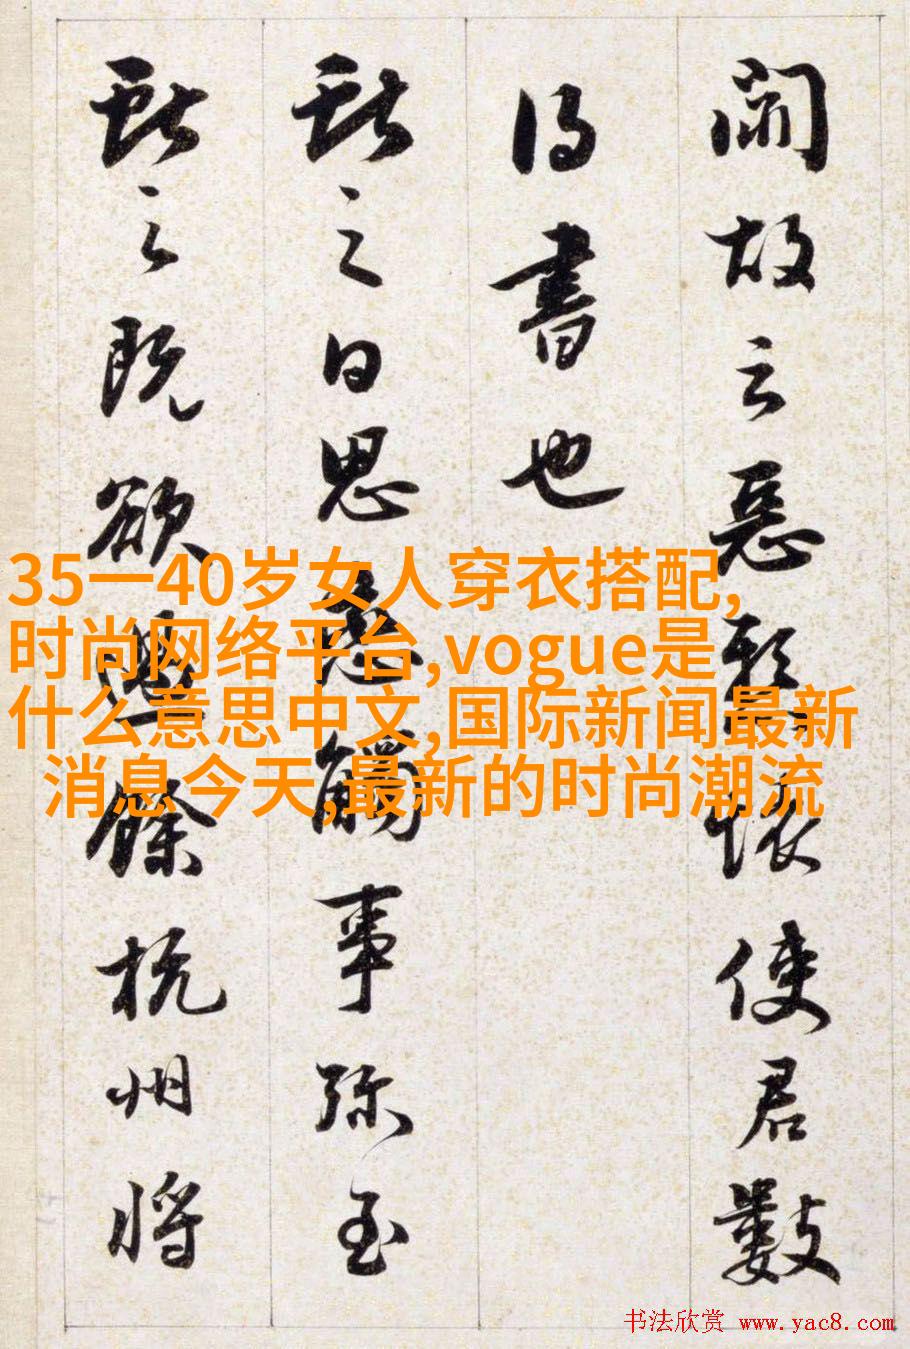 故云惡懸懷使君數
得書也
獻之白思戀觸事弥至
獻之既欲過餘杭州將
35一40岁女人穿衣搭配,
时尚网络平台,vogue是
什么意思中文,国际新闻最新
消息今天,最新的时尚潮流
书法欣赏 www.yac8.com